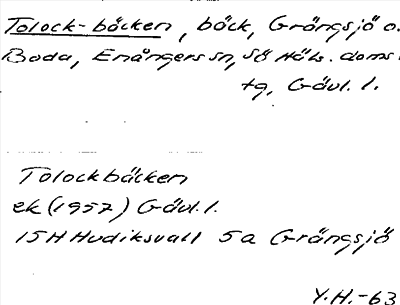 Tolock-bäcken, bäck, Grängsjö o.
Boda, Enångers sn, Sö Häls. doms.
tg, Gävl. l.
Tolockbäcken
ek (1957) Gävl. l.
15H Hudiksvall 5a Grängsjö
Y.H.-63